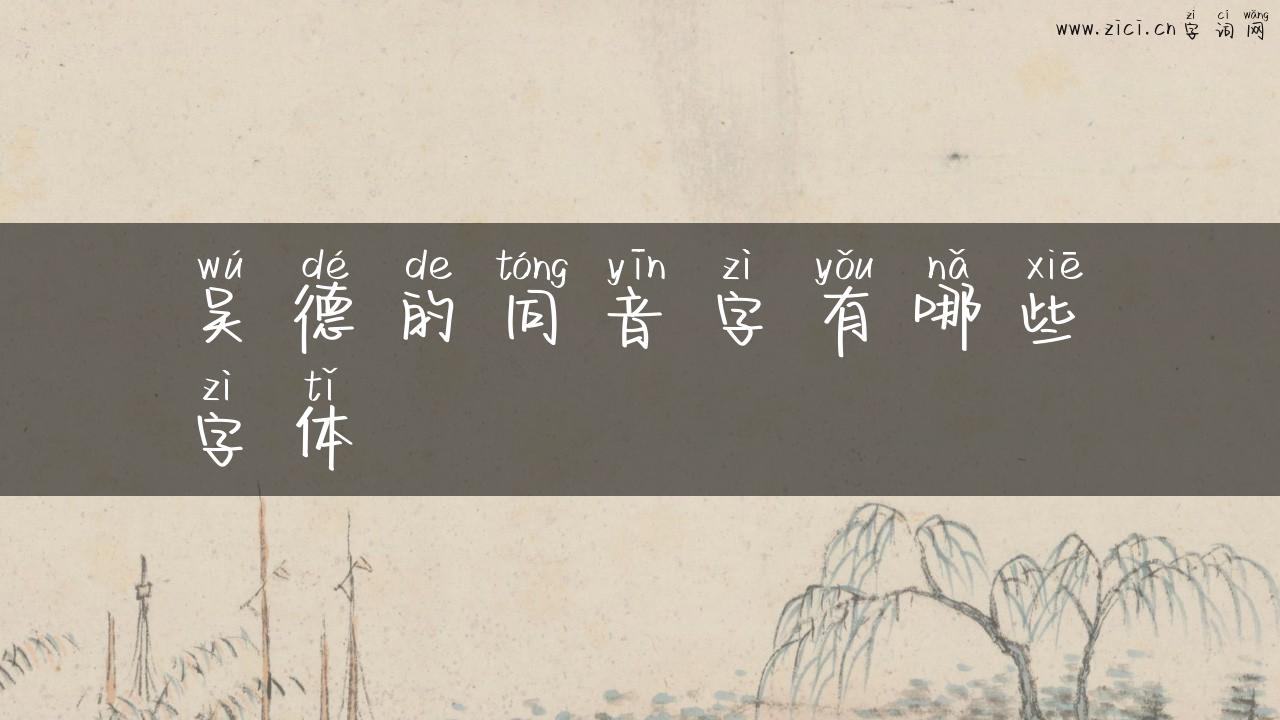 zì cí wǎng
www.zici.cn 字词网
wú dé de tóng yīn zì yǒu nǎ xiē
吴德的同音字有哪些
zì tǐ
字体